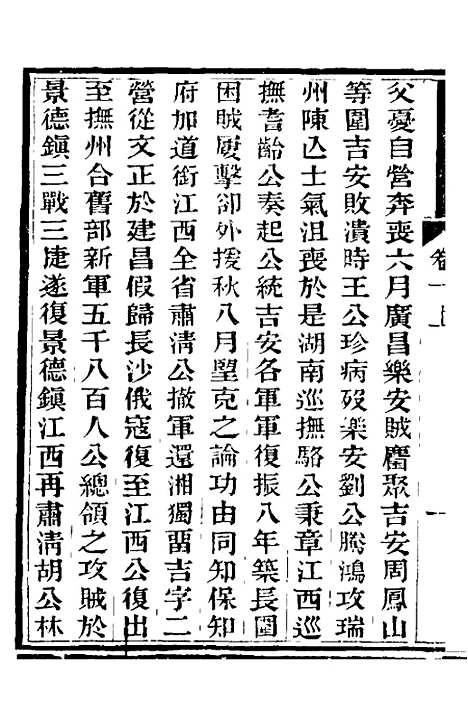 父憂自營奔喪六月廣昌樂安賊麕聚吉安周鳳山
等圍吉安敗潰時王公珍病歿樂安劉公騰鴻攻瑞
州陳亾士氣沮喪於是湖南巡撫駱公秉章江西巡
撫耆齡公奏起公統吉安各軍軍復振八年築長圍
困賊屢擊卻外援秋八月堲克之論功由同知保知
府加道銜江西全省肅淸公撤軍還湘獨畱吉字二
營從文正於建昌假歸長沙俄寇復至江西公復出
至撫州合舊部新軍五千八百人公總領之攻賊於
景德鎭三戰三捷遂復景德鎭江西再肅淸胡公林
卷一